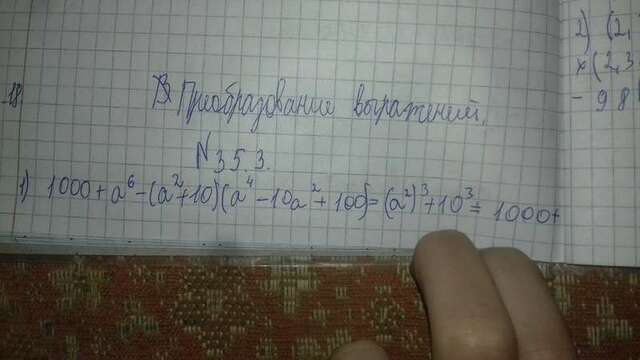 18
Преобразований выражений.
N 353.
1) 1000 + a⁶ - (a² + 10)(a⁴ - 10a² + 100) = (a²)³ + 10³ = 1000 +
2) (2,
x(2,3
- 9 8